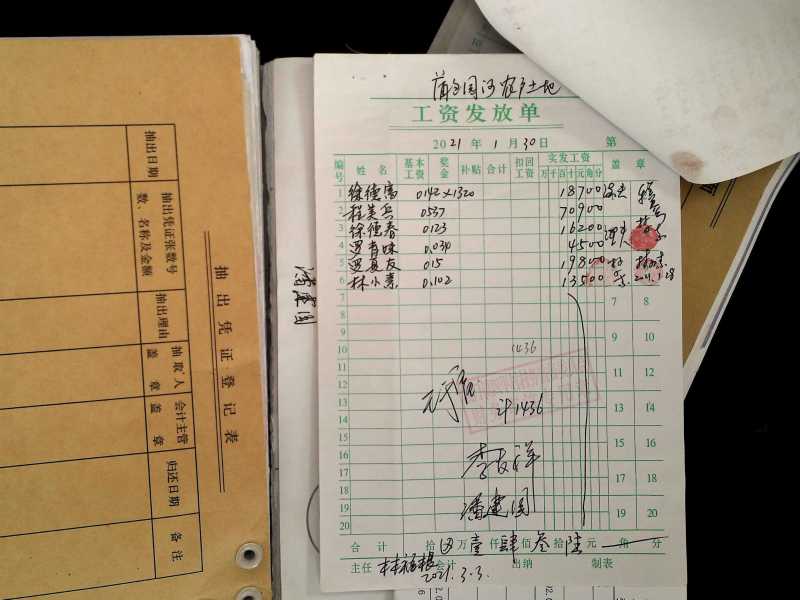 工资发放单
2021年1月30日 第
编号 姓名 基本工资 奖金 补贴 合计 扣回工资 实发工资 万千百十元角分 盖章
1 徐德富 0.142×1320 18700
2 程美兵 0.537 70900
3 徐德春 0.123 16200
4 罗有妹 0.034 4500
5 罗夏友 0.15 19800
6 林小素 0.102 13500
7 7 8
8
9 9 10
10 1436
11 11 12
12
13 计1436 13 14
14
15 15 16
16 李友洋
17 17 18
18
19 潘建国 19 20
20
合计 拾 万 壹仟 肆佰 叁拾 陆元 角 分
主任 林福根 会计 出纳 制表
2021.3.3.
潘建国
抽出凭证登记表
抽出日期
抽出凭证张数号数、名称及金额
抽出理由
抽取人盖章
会计主管盖章
归还日期
备注